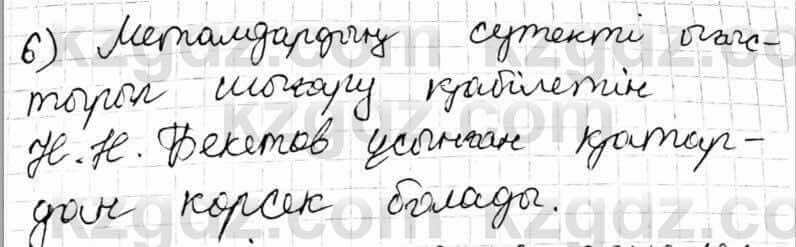 б) Металдардың сутекті ығыс-
тырып шығару қабілетін
Н.Н. Бекетов ұсынған қатар-
дан көрсек болады.